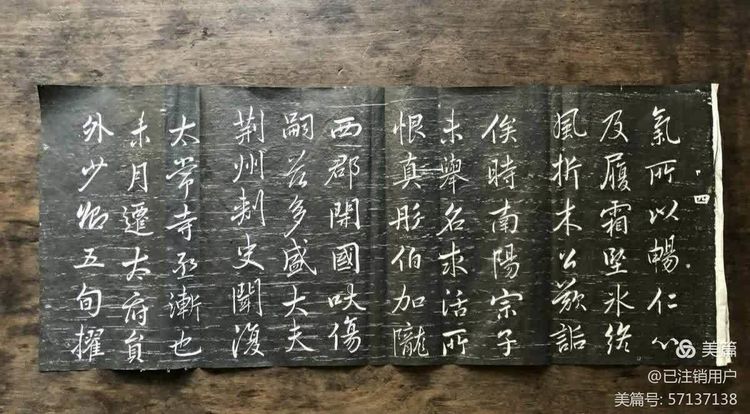 四
氣所以暢仁心
及履霜堅冰終
風折木公歎詬
俟時南陽宗子
未舉名求活所
恨真彤伯加隴
西郡開國傷
嗣茲多盛大夫
荊州刺史聞復
太常寺丞漸也
未月遷太府員
外少卿五旬擢
美篇
@已注销用户
美篇号: 57137138